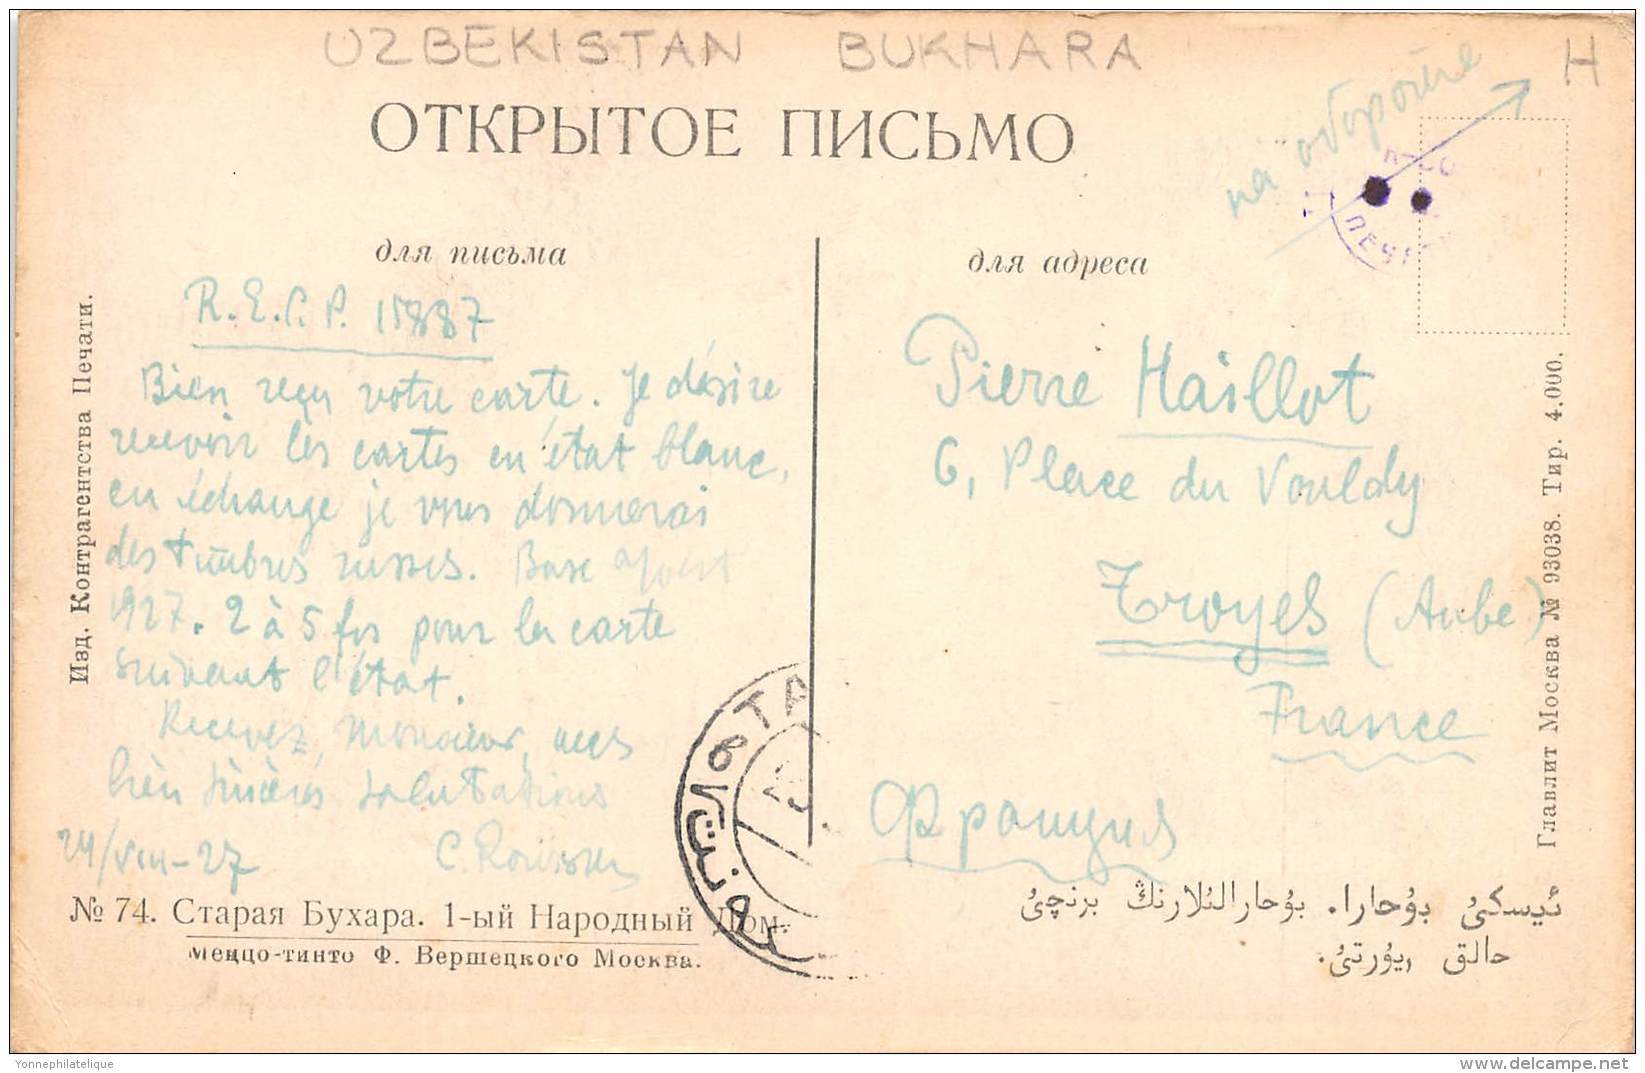 UZBEKISTAN BUKHARA H
ОТКРЫТОЕ ПИСЬМО
на обороте
для письма
для адреса
R.E.C.P. 15887
Bien reçu votre carte. Je désire
recevoir les cartes en état blanc,
en échange je vous donnerai
des timbres russes. Base
1927. 2 à 5 fois pour la carte
suivant l'état.
Recevez, Monsieur, mes
bien sincères salutations
24/VIII-27 C.
Pierre Maillot
6, Place du Vouldy
Troyes (Aube)
France
Франция
Изд. Контрагентства Печати.
Главлит Москва № 93038. Тир. 4.000.
№ 74. Старая Бухара. 1-ый Народный Дом.
Меццо-тинто Ф. Вершецкого Москва.
ئيسكىُ بۇحارا. بۇحارالئلارنڭ برنچىُ
حالق يۇرتىُ.
Yonnephilatelique
www.delcampe.net